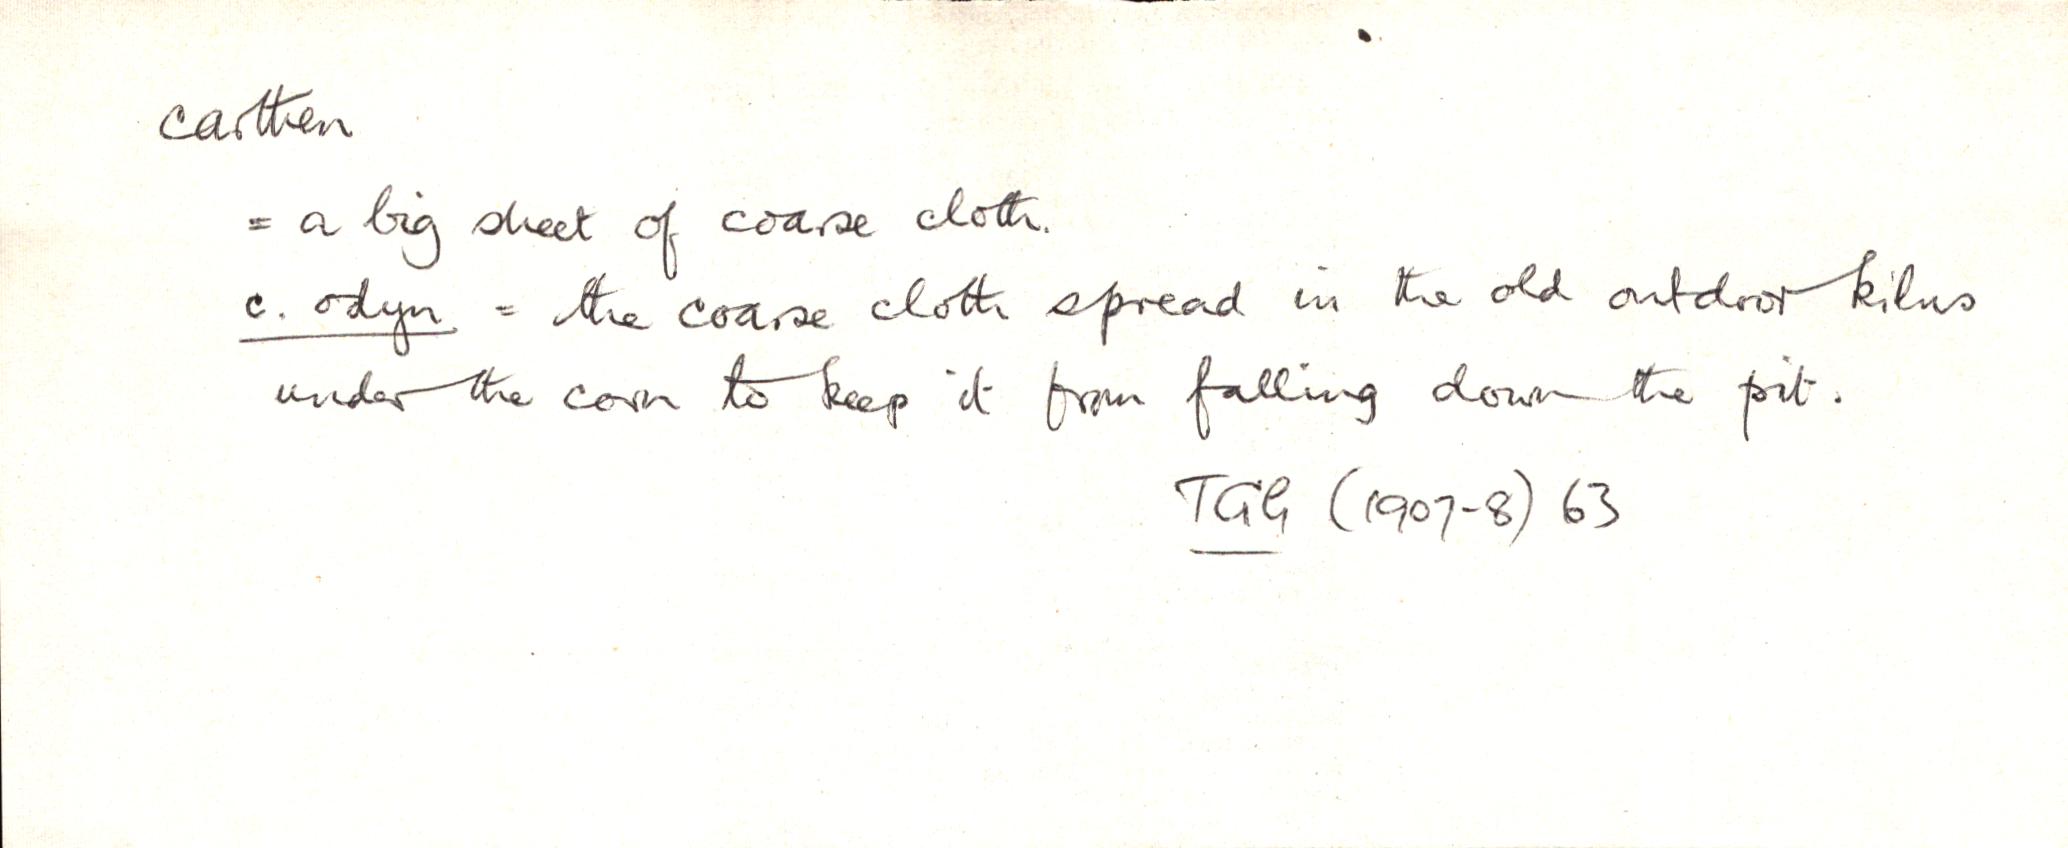 carthen
= a big sheet of coarse cloth.
c. odyn = the coarse cloth spread in the old outdoor kilns
under the corn to keep it from falling down the pit.
TGG (1907-8) 63